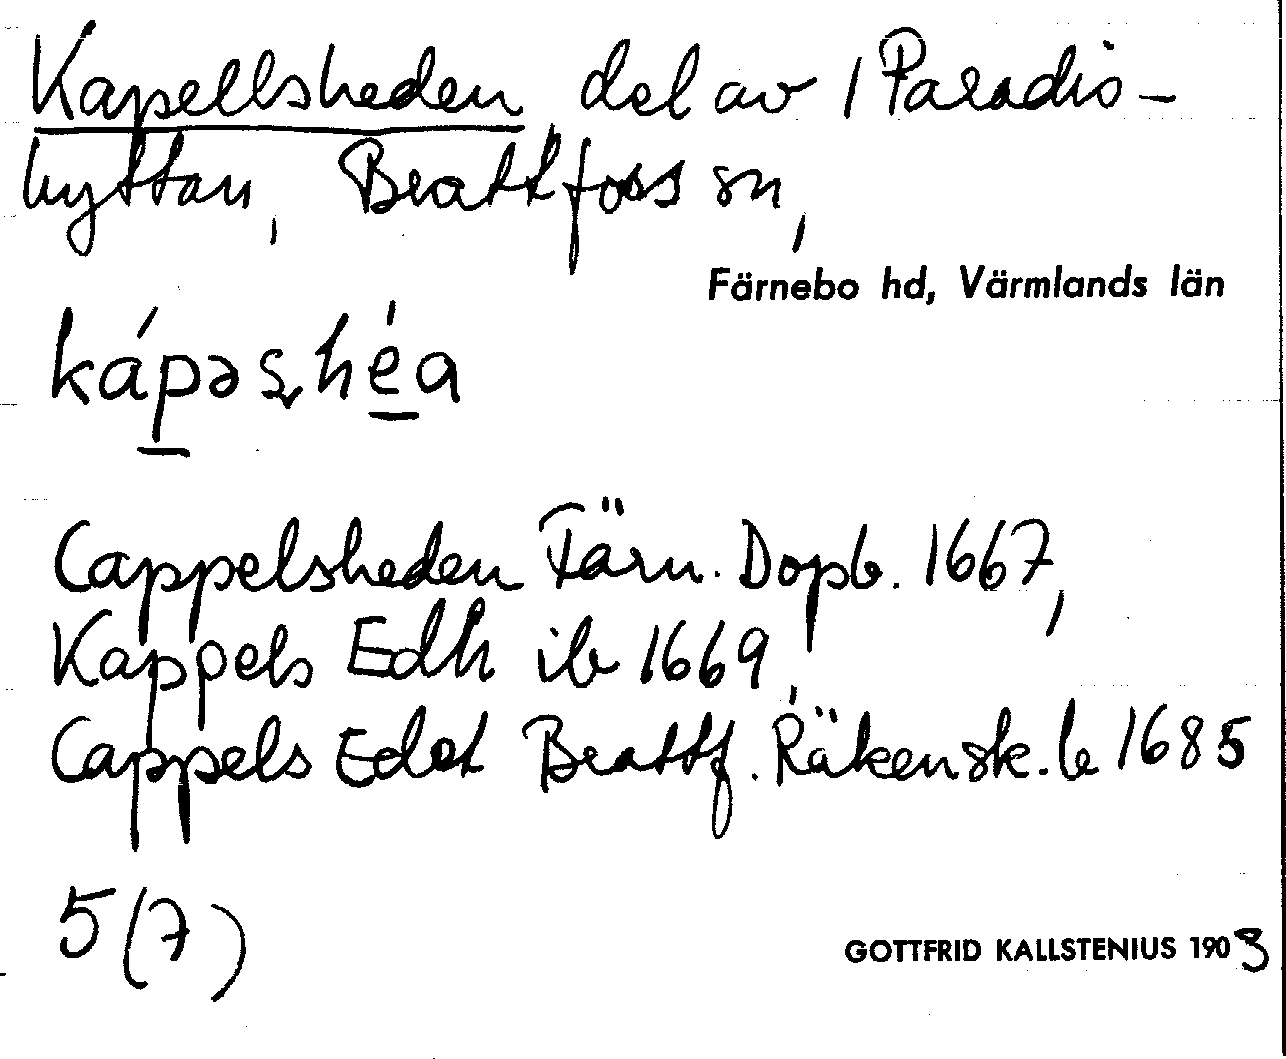 Kapellsheden, del av 1 Paradis-
hyttan, Brattfoss sn,
Färnebo hd, Värmlands län
kápəsh́éa
Cappelsheden Färn. Dopb. 1667,
Kappels Edh ib 1669,
Cappels Edet Brattf. Räkensk.b 1685
5(7)
GOTTFRID KALLSTENIUS 1903